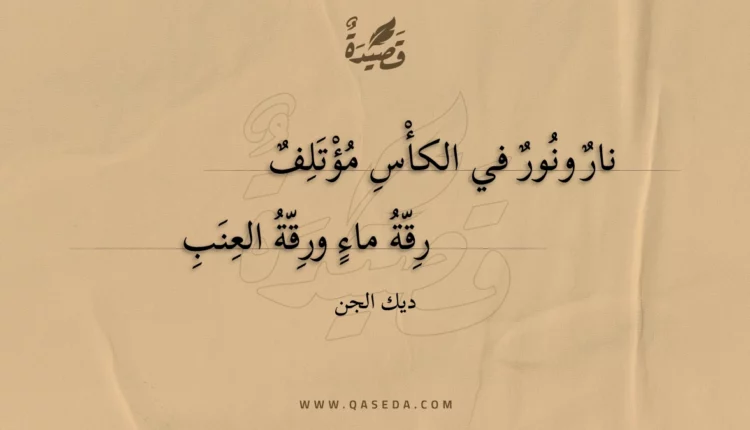 قَصِيدَةٌ
نارٌ ونُورٌ في الكأْسِ مُؤْتَلِفٌ
رِقّةُ ماءٍ ورِقّةُ العِنَبِ
ديك الجن
WWW.QASEDA.COM